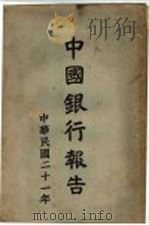 中國銀行報告
中華民國二十一年
www.doyoudoc.com